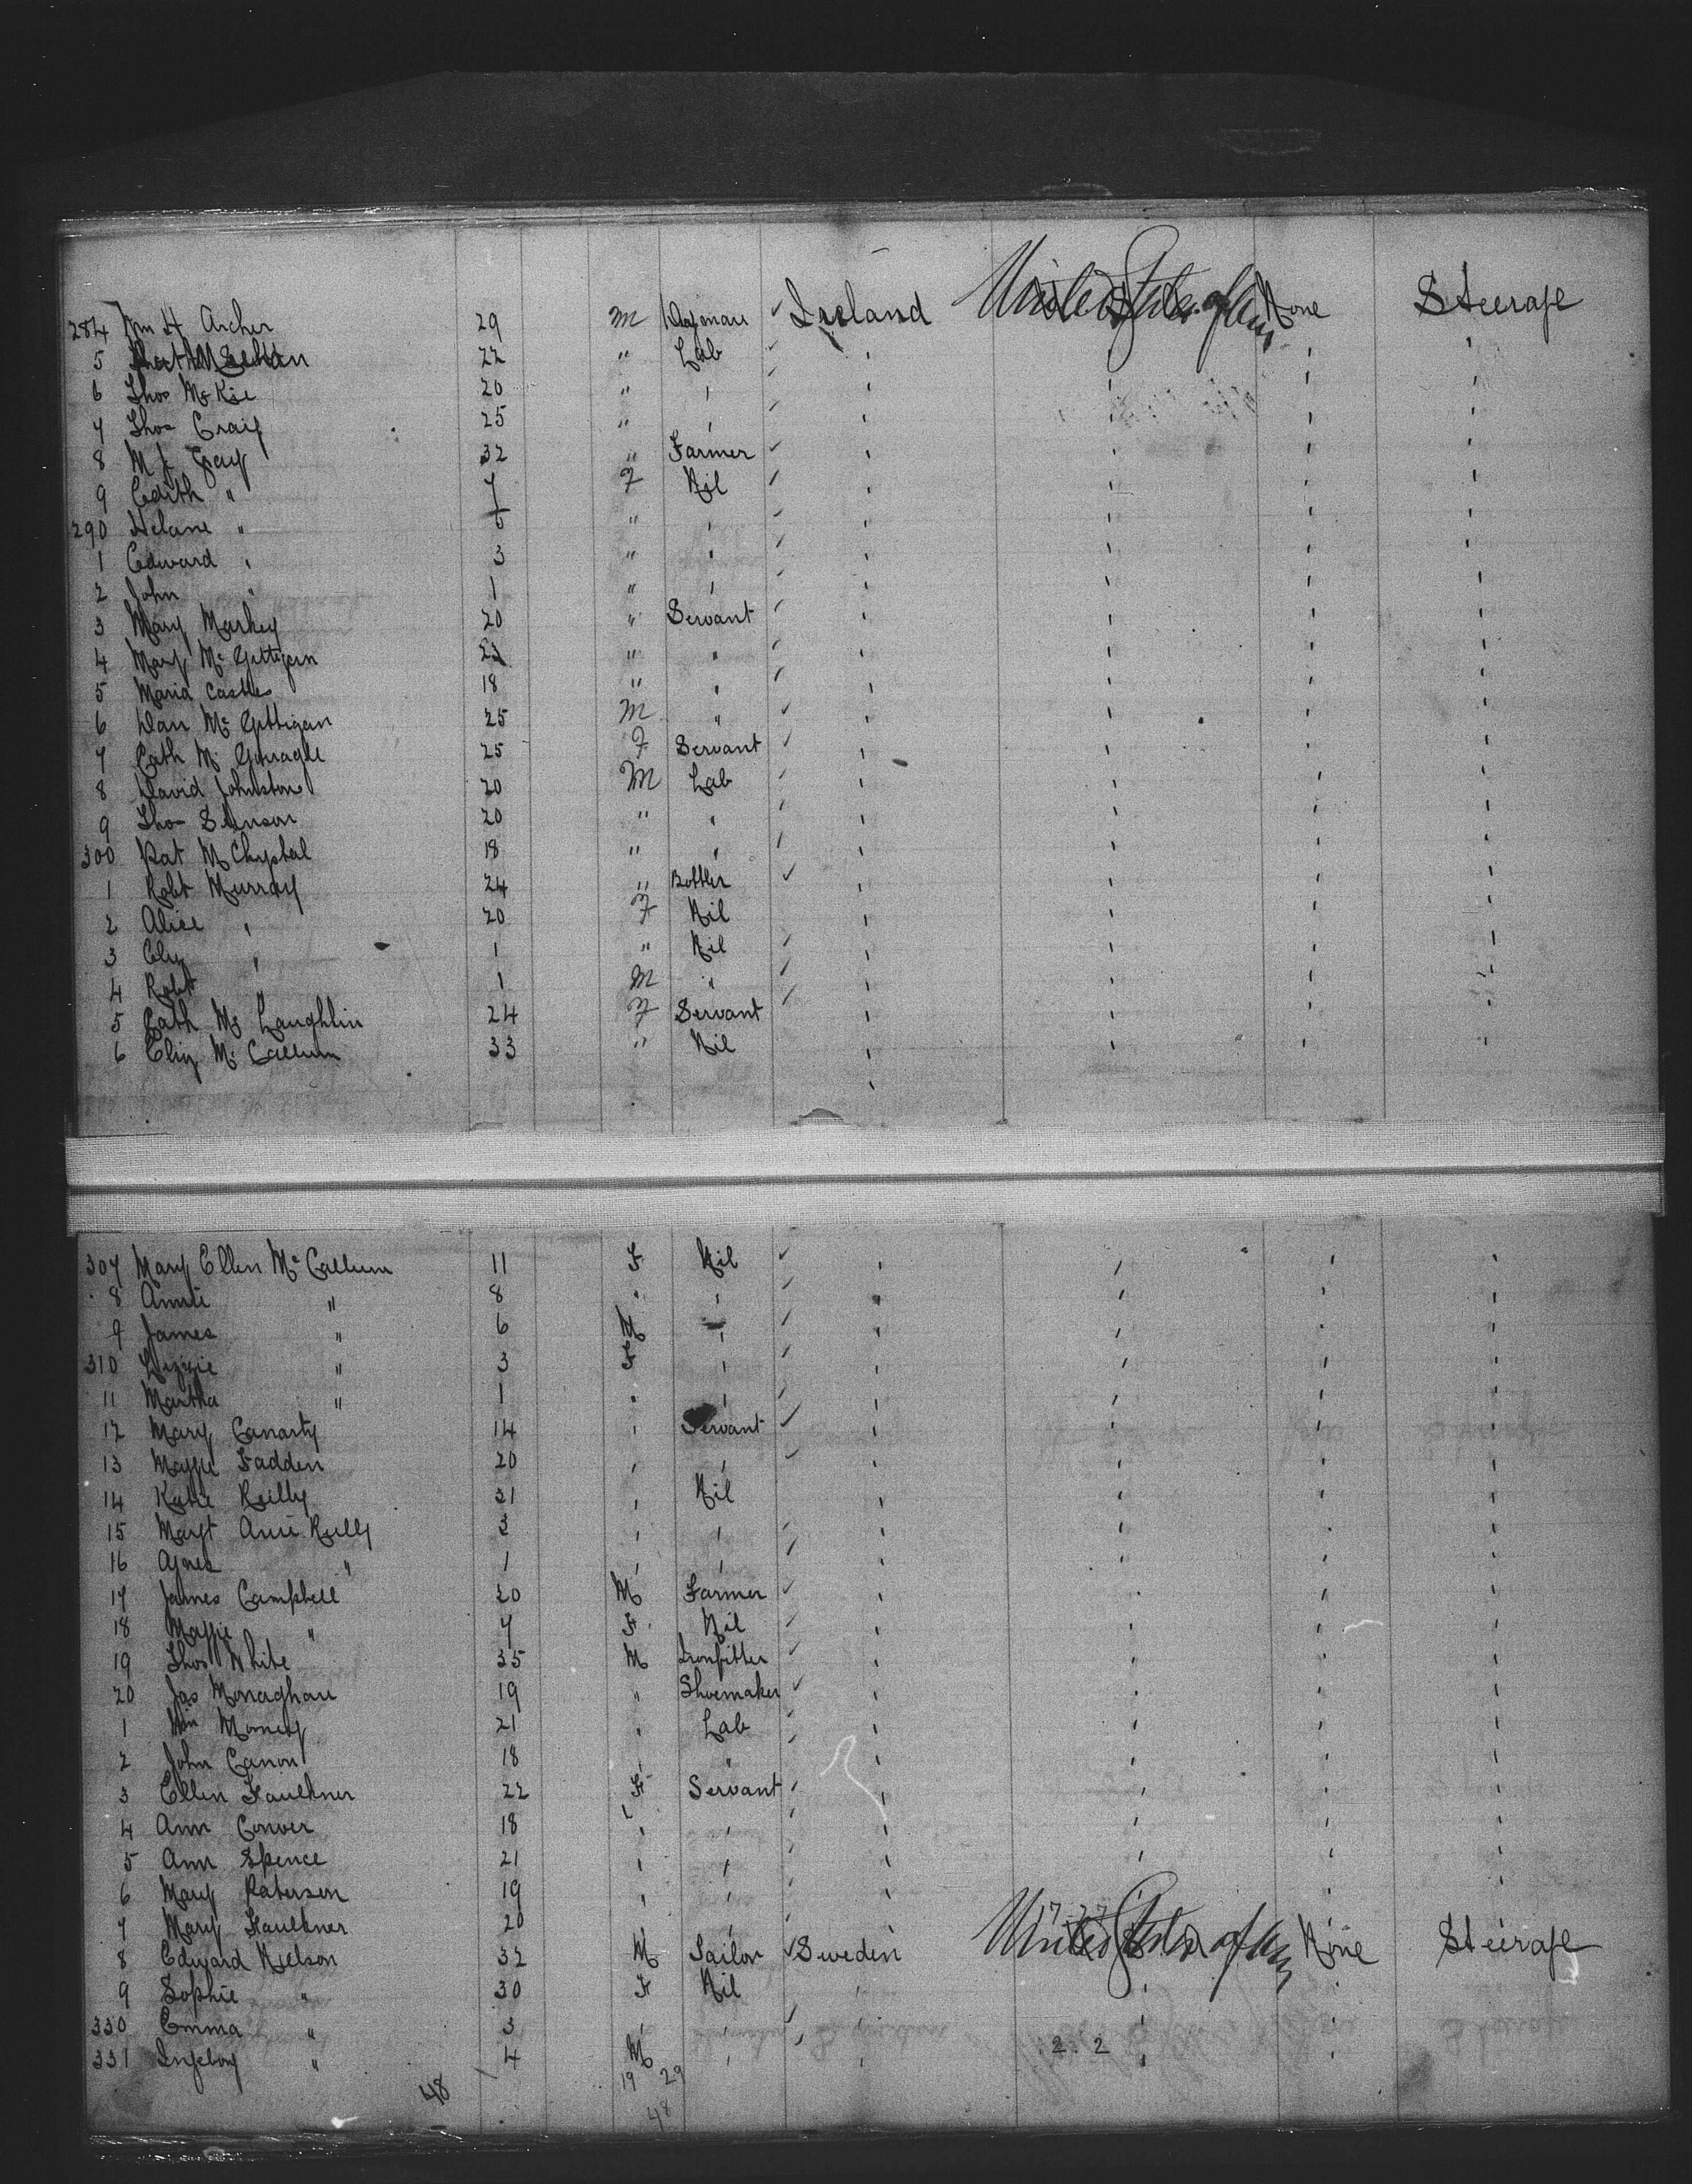 284 Wm H Archer 29 M Ireland United States of Am None Steerage
5 22 " Lab ' ' ' '
6 Thos McKie 20 " ' ' ' ' '
7 Thos Craig 25 " ' ' ' ' '
8 M J Gray 32 " Farmer ' ' ' '
9 Edith " 7 F Nil ' ' ' '
290 Helane " 6 " ' ' ' ' '
1 Edward " 3 " ' ' ' ' '
2 John " 1 " ' ' ' ' '
3 Mary Markey 20 " Servant ' ' ' '
4 Mary McGettigan " " ' ' ' '
5 Maria 18 " " ' ' ' '
6 Dan McGettigan 25 M " ' ' ' '
7 Cath 25 F Servant ' ' ' '
8 David Johnston 20 M Lab ' ' ' '
9 Thos 20 " " ' ' ' '
300 Pat McChrystal 18 " " ' ' ' '
1 Robt Murray 24 " Bottler ' ' ' '
2 Alice " 20 F Nil ' ' ' '
3 Eliz " 1 " Nil ' ' ' '
4 Robt " 1 M " ' ' ' '
5 Cath McLaughlin 24 F Servant ' ' ' '
6 Eliz McCallum 33 " Nil ' ' ' '
307 Mary Ellen McCallum 11 F Nil ' ' ' '
8 Annie " 8 " ' ' ' ' '
9 James " 6 M ' ' ' ' '
310 Lizzie " 3 F ' ' ' ' '
11 Martha " 1 " ' ' ' ' '
12 Mary Canarty 14 ' Servant ' ' ' '
13 Maggie Fadden 20 ' ' ' ' ' '
14 Katie Reilly ' Nil ' ' ' '
15 Margt Anne Reilly 3 ' ' ' ' ' '
16 Agnes " 1 ' ' ' ' ' '
17 James Campbell 20 M Farmer ' ' ' '
18 Maggie " 7 F Nil ' ' ' '
19 Thos White 35 M Ironfitter ' ' ' '
20 Jas Monaghan 19 " Shoemaker ' ' ' '
1 Wm 21 " Lab ' ' ' '
2 John Canon 18 ' " ' ' ' '
3 Ellen Faulkner 22 F Servant ' ' ' '
4 Ann Conver 18 ' ' ' ' ' '
5 Ann Spence 21 ' ' ' ' ' '
6 Mary Paterson 19 ' ' ' ' ' '
7 Mary Faulkner 20 ' ' ' '
8 Edward Nelson 32 M Sailor Sweden United States of Am None Steerage
9 Sophie " 30 F Nil ' ' '
330 Emma " 3 ' ' ' ' '
331 Ingeboy " 4 M ' ' 2. 2 ' '
48 19 29
48